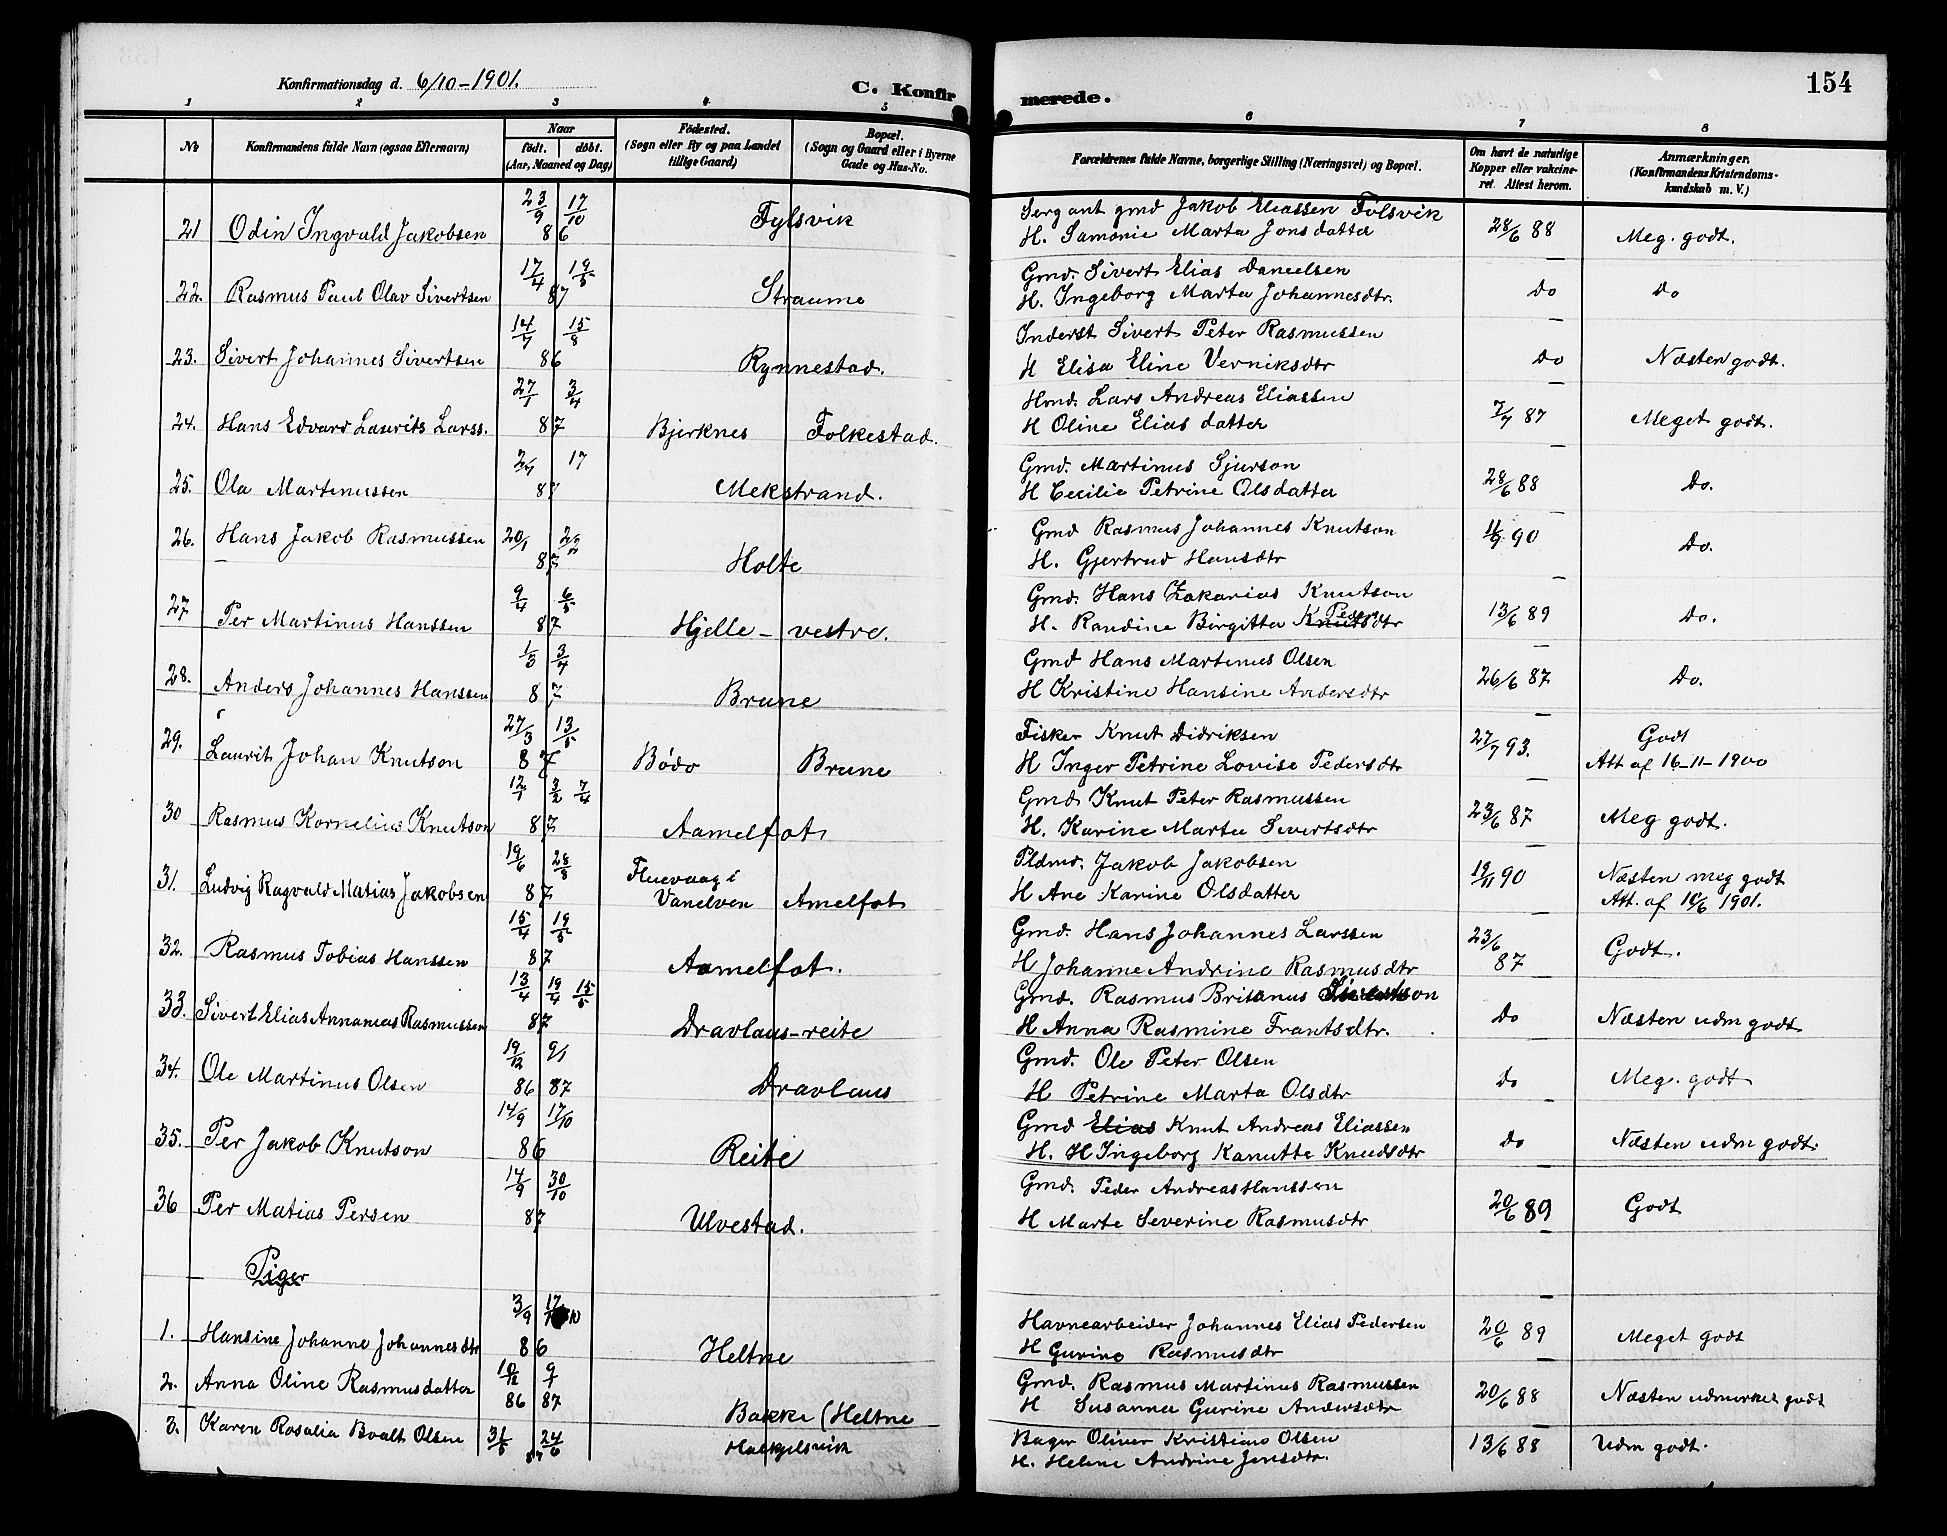 Konfirmationsdag d. 6/10-1901.
C. Konfir
merede.
154
1 2 3 4 5 6 7 8
No
Konfirmandens fulde Navn (ogsaa Efternavn)
Naar
født. døbt.
(Aar, Maaned og Dag)
Fødested.
(Sogn eller By og paa Landet
tillige Gaard)
Bopæl.
(Sogn og Gaard eller i Byerne
Gade og Hus-No.
Forældrenes fulde Navne, borgerlige Stilling (Næringsvei) og Bopæl.
Om havt de naturlige
Kopper eller vakcine-
ret. Attest herom.
Anmærkninger.
(Konfirmandens Kristendoms-
kundskab m. V.)
21 Odin Ingvald Jakobsen 23/9 17/10 86 Fylsvik
Sergant gmd Jakob Eliassen Fölsvik
H. Samonie Marta Jonsdatter 28/6 88 Meg. godt.
22. Rasmus Paul Olav Sivertsen 17/4 19/5 87 Straume
Gmd. Sivert Elias Danielsen
H. Ingeborg Marta Johannesdtr. Do Do
23. Sivert Johannes Sivertsen 14/7 15/8 86 Rynnestad.
Inderst Sivert Peter Rasmussen
H Elisa Eline Verniksdtr Do Næsten godt.
24. Hans Edvard Laurits Larss. 27/1 3/4 87 Bjerknes Folkestad.
Hmd. Lars Andreas Eliassen
H Oline Elias datter 7/7 87 Meget godt.
25. Ola Martinussen 2/7 17 87 Mekstrand.
Gmd. Martinus Sjurson
H Cecilie Petrine Olsdatter 28/6 88 Do.
26. Hans Jakob Rasmussen 20/1 87 Holte
Gmd Rasmus Johannes Knutson
H. Gjertrud Hansdtr 90 Do.
27 Per Martinus Hanssen 9/4 6/5 87 Hjelle - vestre.
Gmd. Hans Zakarias Knutson
H. Randine Birgitta Knutsdtr Peders 13/6 89 Do.
28. Anders Johannes Hanssen 1/3 3/4 87 Brune
Gmd Hans Martinus Olsen
H Kristine Hansine Andersdtr 26/6 87 Do.
29. Laurit Johan Knutson 27/3 13/5 87 Bódo Brune
Fisker Knut Didriksen
H Inger Petrine Lovise Pedersdtr 27/7 93. Godt
Att af 16-11-1900
30 Rasmus Kornelius Knutson 12/1 3/2 7/4 87 Aamelfot
Gmd Knut Peter Rasmussen
H. Karine Marta Sivertsdtr 23/6 87 Meg godt.
31. Ludvig Ragvald Matias Jakobsen 19/6 28/8 87 Fluevaag i
Vanelven Amelfot
Pldmd. Jakob Jakobsen
H Ane Karine Olsdatter 19/11 90 Næsten meg godt
Att. af 10/6 1901.
32. Rasmus Tobias Hanssen 15/4 19/5 87 Aamelfot.
Gmd. Hans Johannes Larssen
H Johanne Andrine Rasmusdtr 23/6 87 Godt.
33. Sivert Elias Annanias Rasmussen 13/4 19/4 15/5 87 Dravlaus-reite
Gmd. Rasmus Britanus Sivertson
H Anna Rasmine Frantsdtr. Do Næsten udm godt
34. Ole Martinus Olsen 19/12 9/1 86 87 Dravlaus
Gmd. Ole Peter Olsen
H Petrine Marta Olsdtr Do Meg. godt
35. Per Jakob Knutson 14/9 17/10 86 Reite
Gmd Elias Knut Andreas Eliassen
H. H Ingeborg Kanutte Knudsdtr Do Næsten udm godt.
36 Per Matias Persen 14/9 30/10 87 Ulvestad.
Gmd. Peder Andreas Hanssen
H Marte Severine Rasmusdtr 20/6 89 Godt
Piger
1. Hansine Johanne Johannesdtr 3/9 17/10 86 Heltne
Havnearbeider Johannes Elias Pedersen
H Gurine Rasmusdtr 20/6 89 Meget godt
2. Anna Oline Rasmusdatter 10/12 9/1 86 87 Bakke (Heltne
Gmd. Rasmus Martinus Rasmussen
H Susanna Gurine Andersdtr 20/6 88 Næsten udmerket godt
3. Karen Rosalia Bvalt Olsen 31/5 24/6 87 Haekjelsvik
Bager Oliver Kristian Olsen
H. Helene Andrine Jensdtr. 13/6 88 Udm godt.